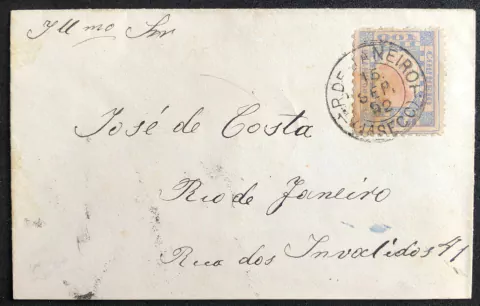 Illmo Snr
José de Costa
Rio de Janeiro
Rua dos Invalidos 41
100 100
CORREIO
R. DE JANEIRO
15
SEP.
92